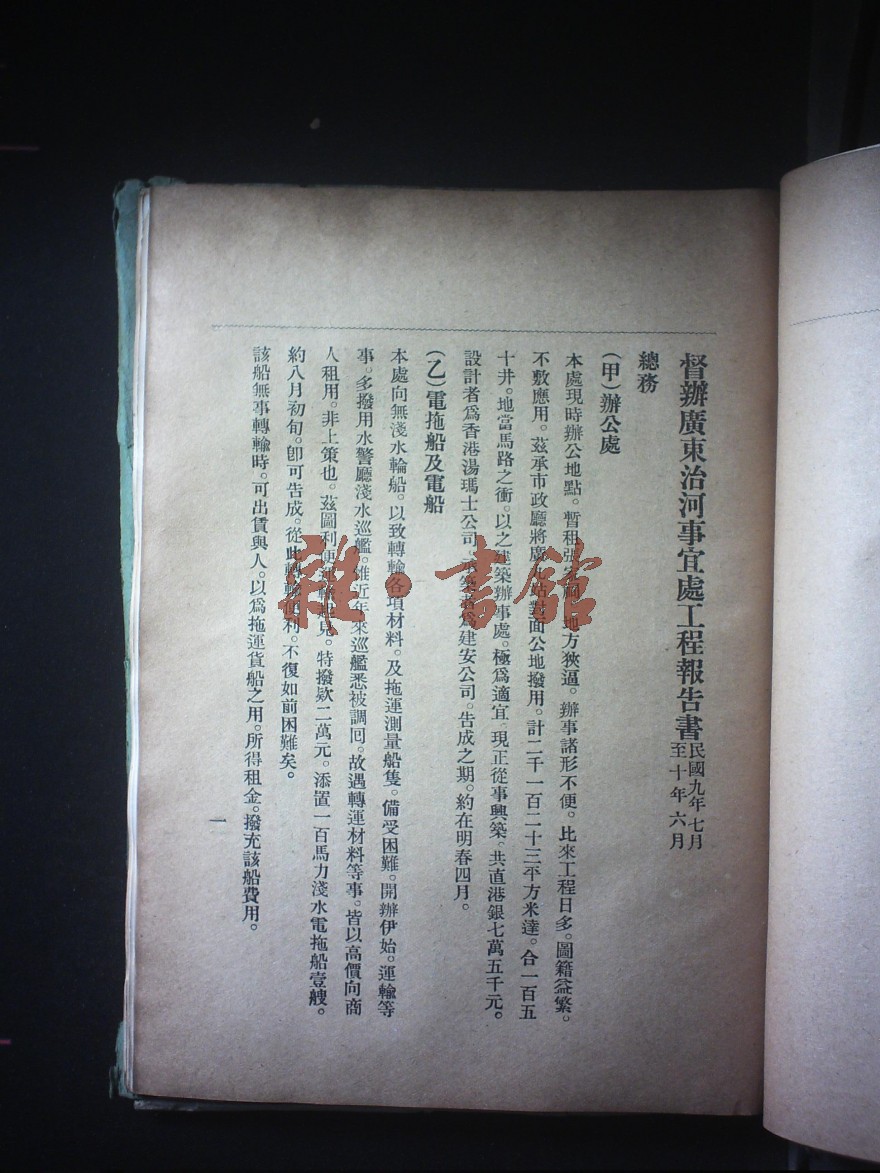 督辦廣東治河事宜處工程報告書民國九年七月至十年六月
總務
(甲)辦公處
本處現時辦公地點。暫租張 地方狹逼。辦事諸形不便。比來工程日多。圖籍益繁。
不敷應用。茲承市政廳將廣九站對面公地撥用。計二千一百二十三平方米達。合一百五
十井。地當馬路之衝。以之建築辦事處。極爲適宜。現正從事興築。共直港銀七萬五千元。
設計者爲香港湯瑪士公司。承築者爲建安公司。告成之期。約在明春四月。
(乙)電拖船及電船
本處向無淺水輪船。以致轉輸各項材料。及拖運測量船隻。備受困難。開辦伊始。運輸等
事。多撥用水警廳淺水巡艦。雖近年來巡艦悉被調回。故遇轉運材料等事。皆以高價向商
人租用。非上策也。茲圖利便運輸起見。特撥欵二萬元。添置一百馬力淺水電拖船壹艘。
約八月初旬。卽可告成。從此轉輸便利。不復如前困難矣。
該船無事轉輸時。可出賃與人。以爲拖運貨船之用。所得租金。撥充該船費用。
一
雜·書館